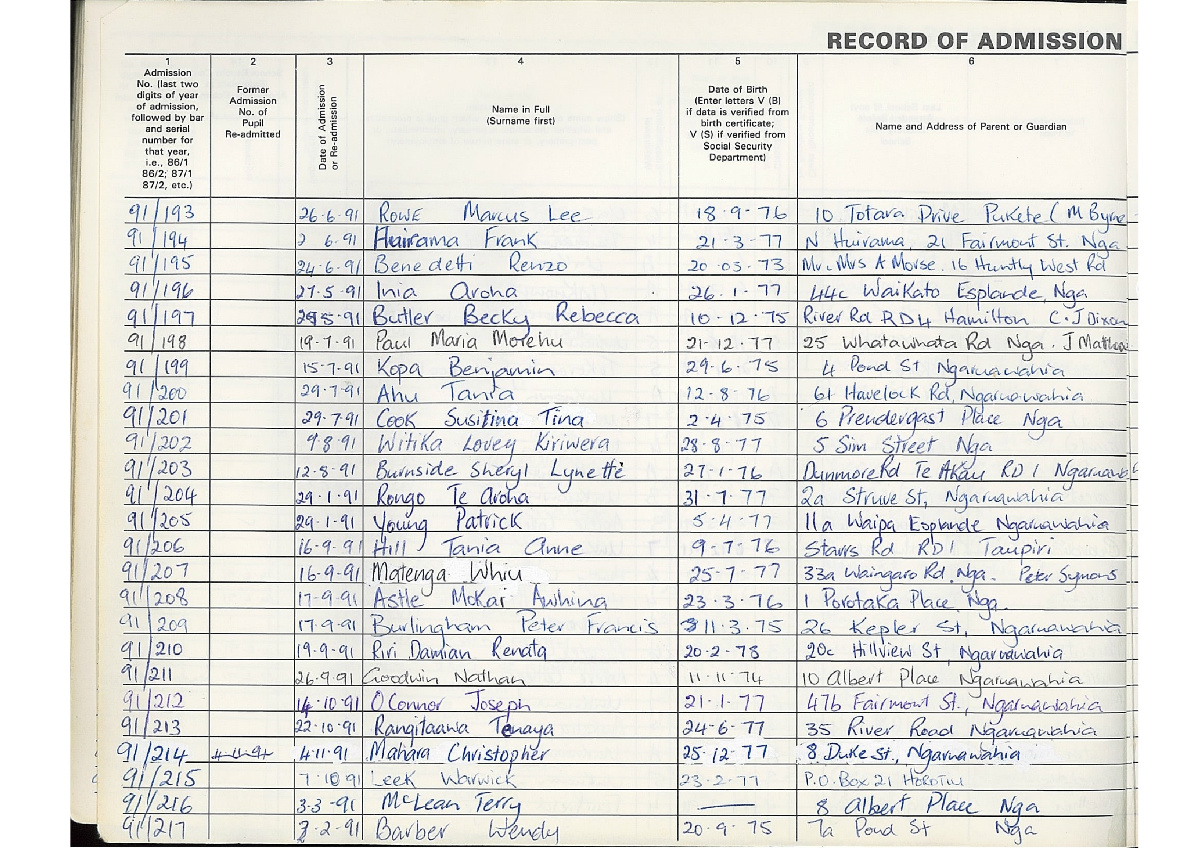 RECORD OF ADMISSION
1 2 3 4 5 6
Admission No. (last two digits of year of admission, followed by bar and serial number for that year, i.e., 86/1 86/2; 87/1 87/2, etc.)
Former Admission No. of Pupil Re-admitted
Date of Admission or Re-admission
Name in Full (Surname first)
Date of Birth (Enter letters V (B) if data is verified from birth certificate; V (S) if verified from Social Security Department)
Name and Address of Parent or Guardian
91/193 26·6·91 Rowe Marcus Lee 18·9·76 10 Totara Drive Pukete ( M Byrne
91/194 2 6·91 Huirama Frank 21·3·77 N Huirama, 21 Fairmont St. Nga
91/195 24·6·91 Benedetti Renzo 20·03·73 Mr. Mrs A Morse. 16 Huntly West Rd
91/196 27·5·91 Inia Aroha 26·1·77 44c Waikato Esplande, Nga
91/197 5·91 Butler Becky Rebecca 10·12·75 River Rd RD4 Hamilton C.J Dixon
91/198 19·7·91 Paul Maria Morehu 21·12·77 25 Whatawhata Rd Nga. J
91/199 15·7·91 Kopa Benjamin 29·6·75 4 Pond St Ngaruawahia
91/200 29·7·91 Ahu Tania 12·8·76 61 Havelock Rd, Ngaruawahia
91/201 29·7·91 Cook Susitina Tina 2·4·75 6 Prendergast Place Nga
91/202 9·8·91 Witika Lovey Kiriwera 28·8·77 5 Sim Street Nga
91/203 12·8·91 Burnside Sheryl Lynette 27·1·76 Dunmore Rd Te Akau RD1
91/204 29·1·91 Rongo Te Aroha 31·7·77 2a Struve St, Ngaruawahia
91/205 29·1·91 Young Patrick 5·4·77 11a Waipa Esplande Ngaruawahia
91/206 16·9·91 Hill Tania Anne 9·7·76 Starrs Rd RD1 Taupiri
91/207 16·9·91 Matenga Whiu 25·7·77 33a Waingaro Rd, Nga. Peter Symons
91/208 17·9·91 Astle Mokai Awhina 23·3·76 1 Porotaka Place, Nga.
91/209 17·9·91 Burlingham Peter Francis 11·3·75 26 Kepler St, Ngaruawahia
91/210 19·9·91 Riri Damian Renata 20·2·78 20c Hillview St, Ngaruawahia
91/211 26·9·91 Goodwin Nathan 11·11·74 10 Albert Place Ngaruawahia
91/212 14·10·91 O'Connor Joseph 21·1·77 47b Fairmont St., Ngaruawahia
91/213 22·10·91 Rangitaawa Tenaya 24·6·77 35 River Road Ngaruawahia
91/214 4·11·91 4·11·91 Mahara Christopher 25·12·77 8 Duke St., Ngaruawahia
91/215 7·10·91 Leek Warwick 23·2·77 P.O. Box 21 Horotiu
91/216 3·3·91 McLean Terry — 8 Albert Place Nga
91/217 2·91 Barber Wendy 20·9·75 7a Pond St Nga